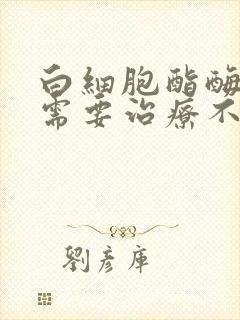 白細胞酯酶
需要治療不
劉彥庫